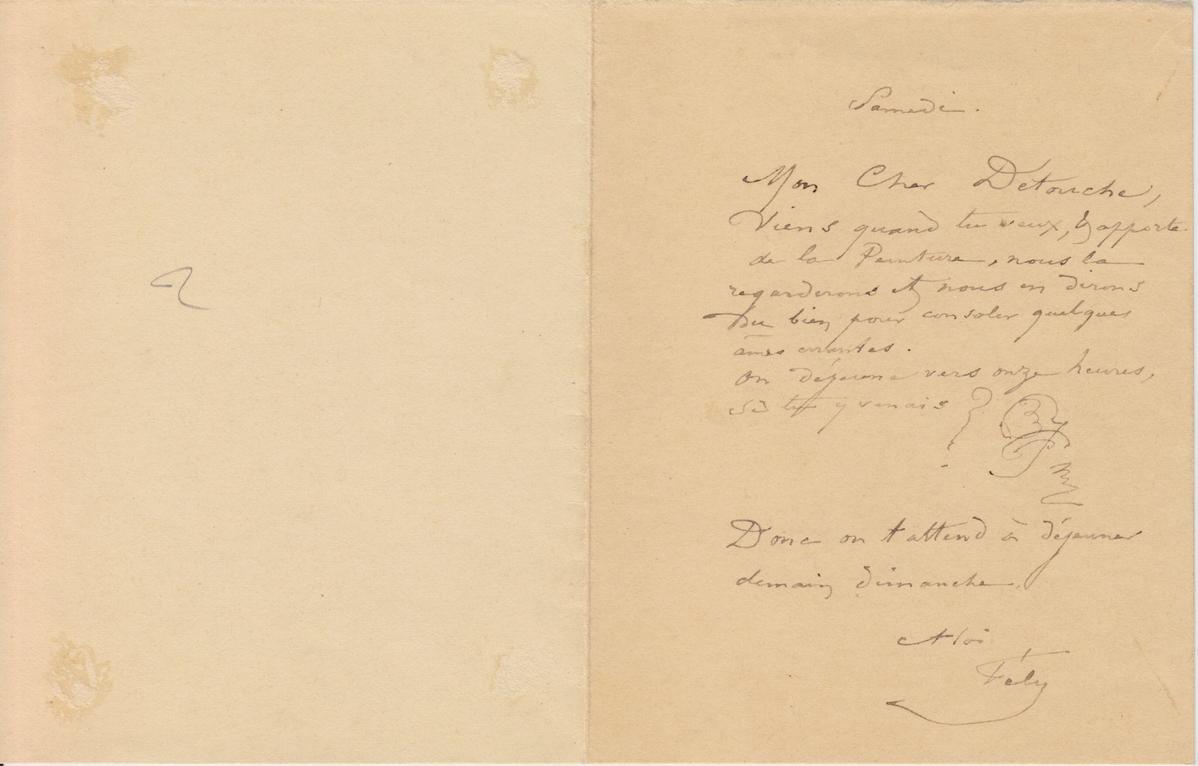 Samedi.
Mon Cher Detouche,
Viens quand tu veux, & apporte
de la Peinture, nous la
regarderons et nous en dirons
du bien pour consoler quelques
âmes errantes.
On déjeune vers onze heures,
si tu y venais ?
Donc on t'attend à déjeuner
demain dimanche.
A toi
Fély